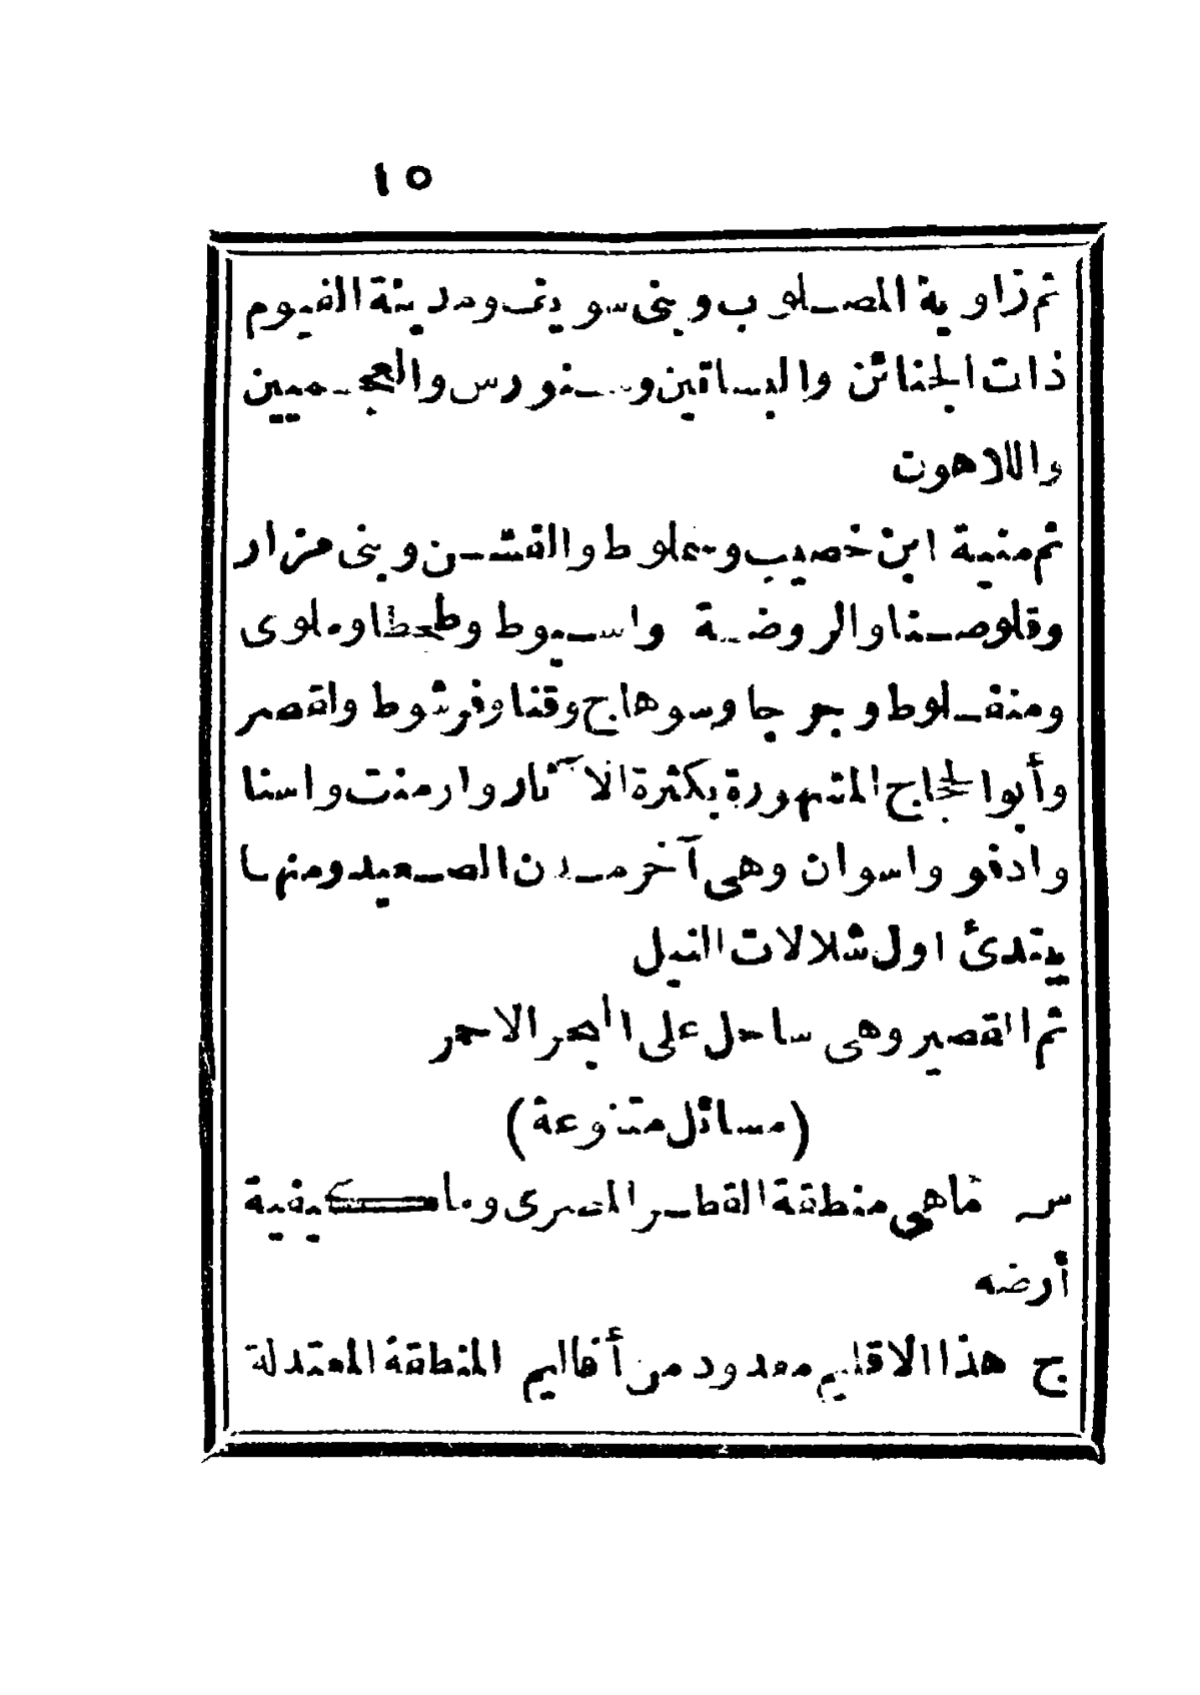 ١٥
ثم زاوية المصلوب وبنى سويف ومدينة الفيوم
ذات الجنائن والبساتين وسنورس والعجميين
واللاهون
ثم منية ابن خصيب وسملوط والفشن وبنى مزار
وقلوصنا والروضة واسيوط وطحطا وملوى
ومنفلوط وجرجا وسوهاج وقنا وفرشوط واقصر
وأبو الحجاج المشهورة بكثرة الآثار وارمنت واسنا
وادفو واسوان وهى آخر مدن الصعيد ومنها
يبتدئ اول شلالات النيل
ثم القصير وهى ساحل على البحر الاحمر
(مسائل متنوعة)
س ما هى منطقة القطر المصرى وما كيفية
أرضه
ج هذا الاقليم معدود من أقاليم المنطقة المعتدلة